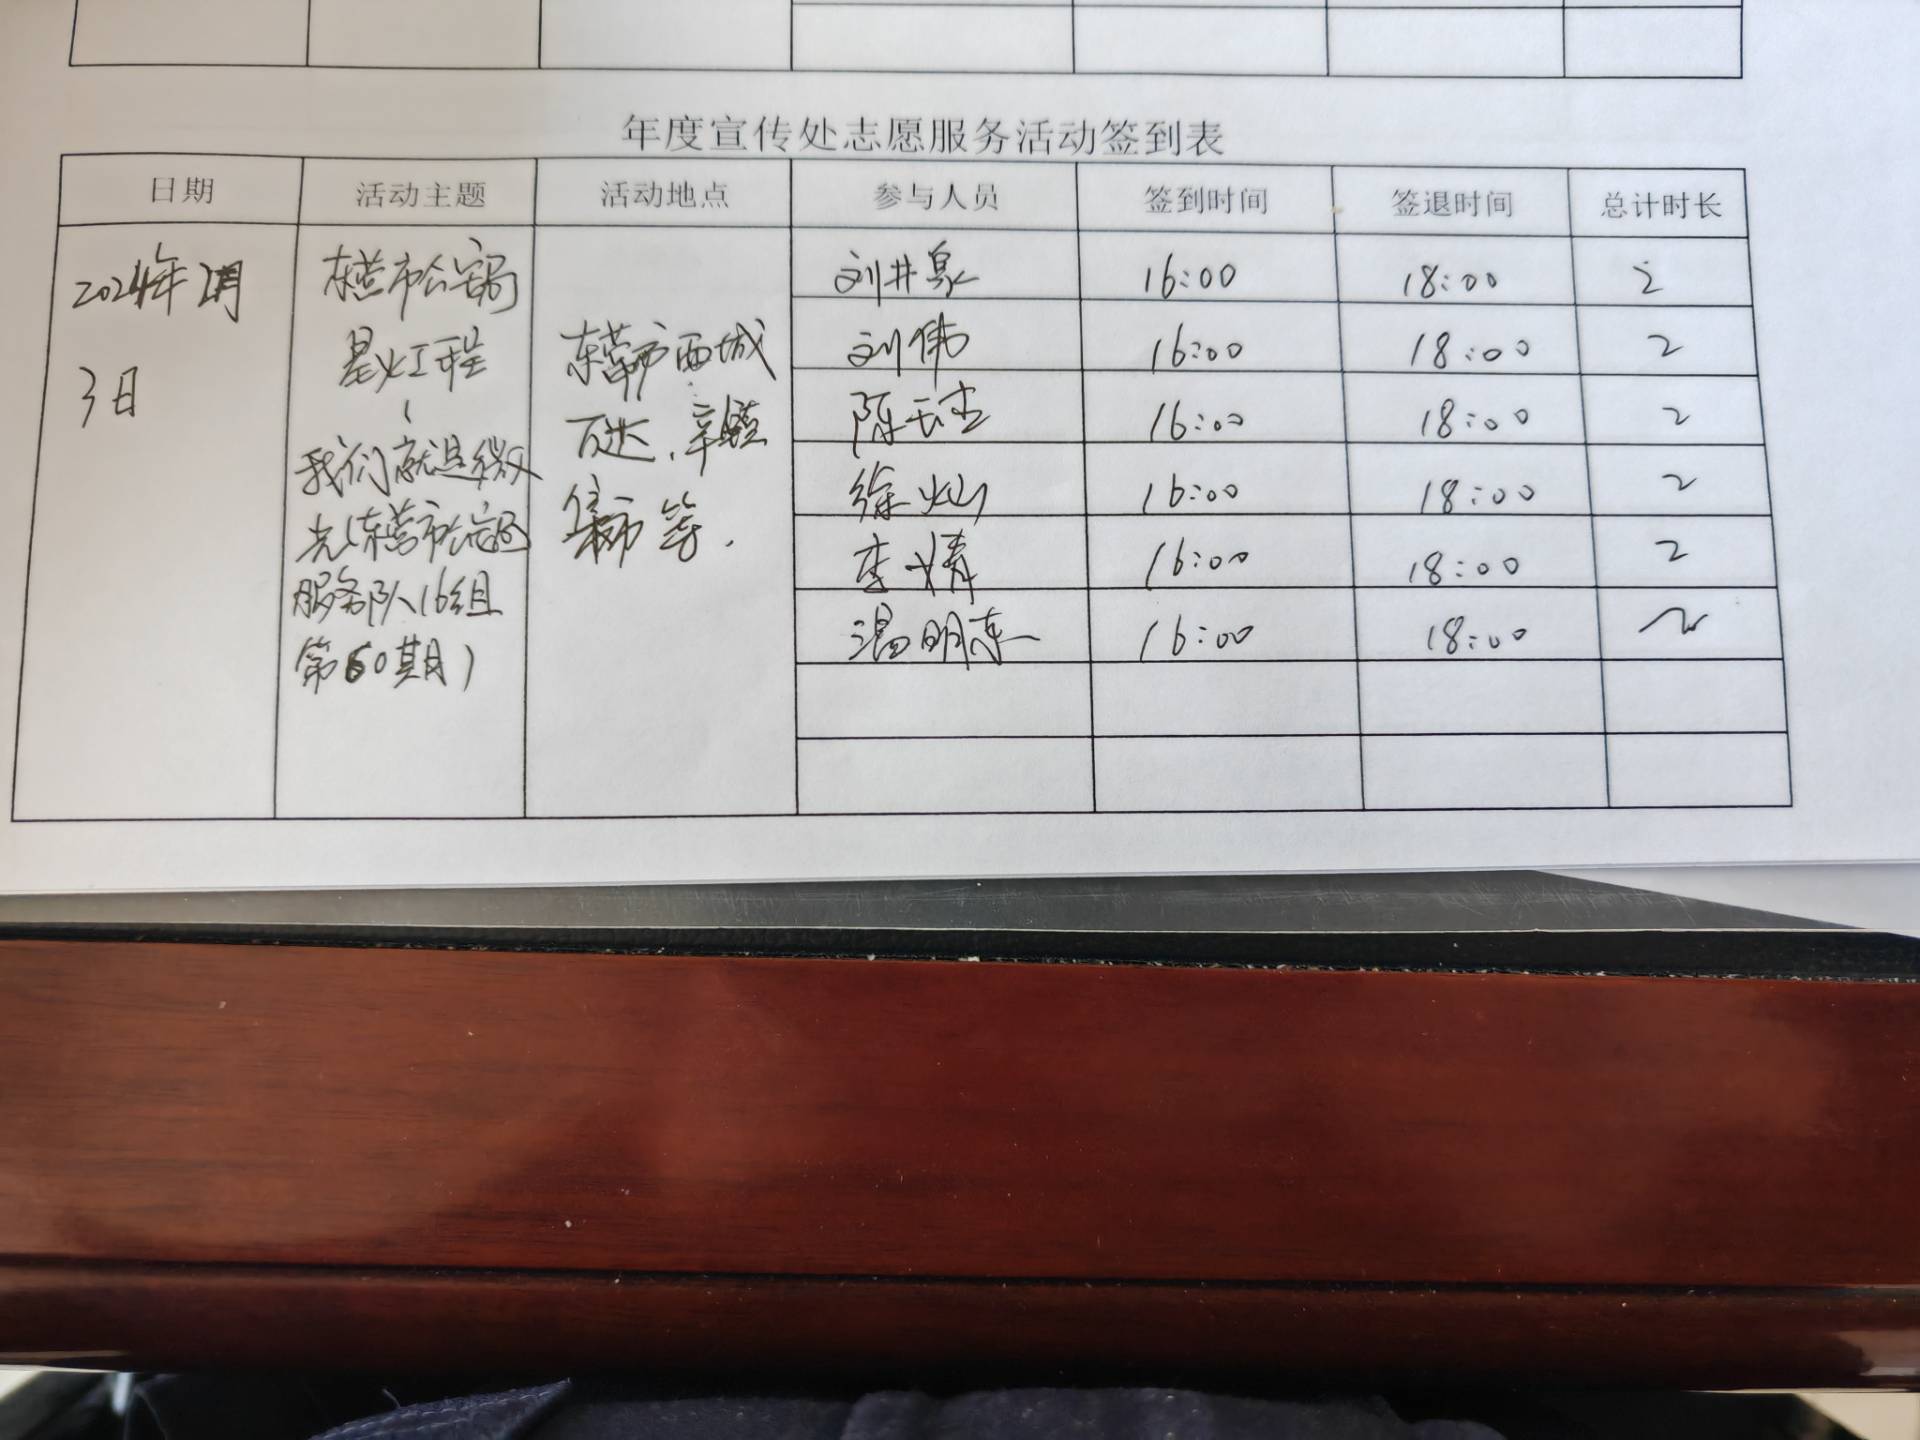 年度宣传处志愿服务活动签到表
日期 活动主题 活动地点 参与人员 签到时间 签退时间 总计时长
2024年2月
3日
东营市公安局
星火工程
(
我们就是微
光(东营市公安局
服务队16组
第60期)
东营市西城
万达、辛镇
集市等.
刘井泉 16:00 18:00 2
刘伟 16:00 18:00 2
陈 16:00 18:00 2
徐灿 16:00 18:00 2
李婧 16:00 18:00 2
温明东 16:00 18:00 2